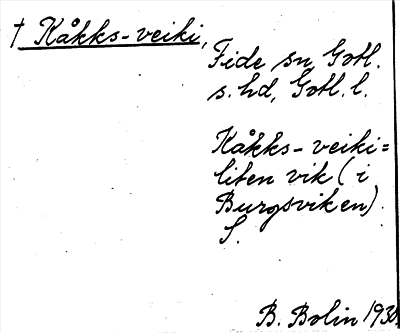 † Kåkks-veiki,
Fide sn Gotl.
s. hd, Gotl. l.
Kåkks-veiki=
liten vik (i
Burgsviken).
S.
B. Bolin